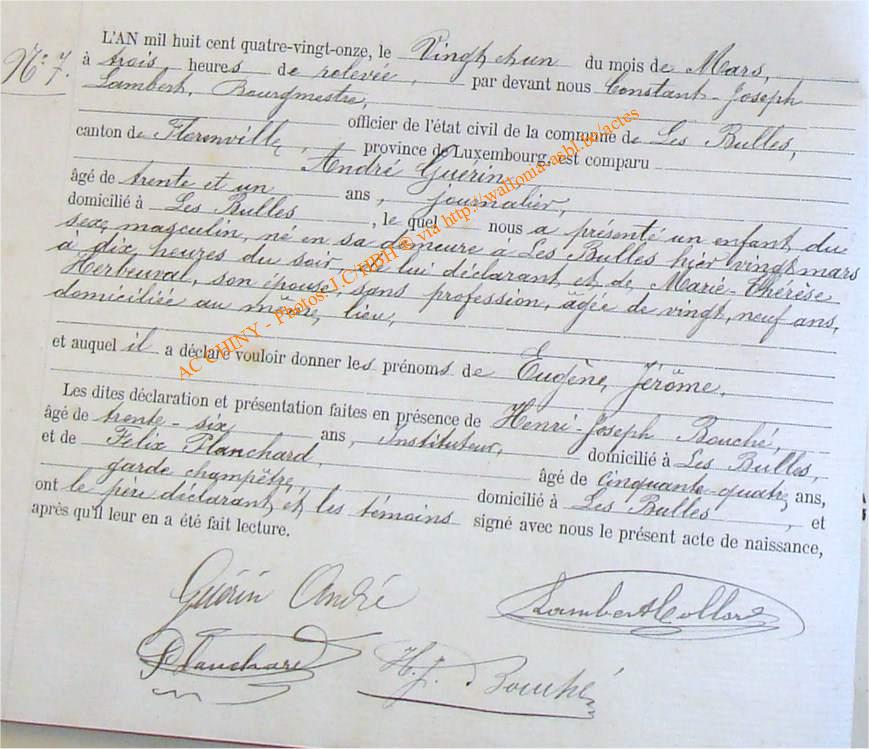 N.° 7.
L'AN mil huit cent quatre-vingt-onze, le Vingt et un du mois de Mars,
à trois heures de relevée, par devant nous Constant-Joseph
Lambert, Bourgmestre,
officier de l'état civil de la commune de Les Bulles,
canton de Florenville, province de Luxembourg, est comparu
André Guerin,
âgé de trente et un ans, journalier,
domicilié à Les Bulles, le quel nous a présenté un enfant du
sexe masculin, né en sa demeure à Les Bulles hier vingt mars
à dix heures du soir, de lui déclarant et de Marie-Thérèse
Herbeuval, son épouse, sans profession, âgée de vingt, neuf ans,
domiciliée au même lieu,
et auquel il a déclaré vouloir donner les prénoms de Eugène, Jérôme.
Les dites déclaration et présentation faites en présence de Henri-Joseph Bouché,
âgé de trente-six ans, Instituteur, domicilié à Les Bulles,
et de Félix Planchard, âgé de cinquante-quatre ans,
garde champêtre, domicilié à Les Bulles, et
ont le père déclarant et les témoins signé avec nous le présent acte de naissance,
après qu'il leur en a été fait lecture.
Guérin André
Lambert
Planchard
H. J. Bouché
AC CHINY - Photos: J.C/HBH © via http://wallonia-asbl.be/actes